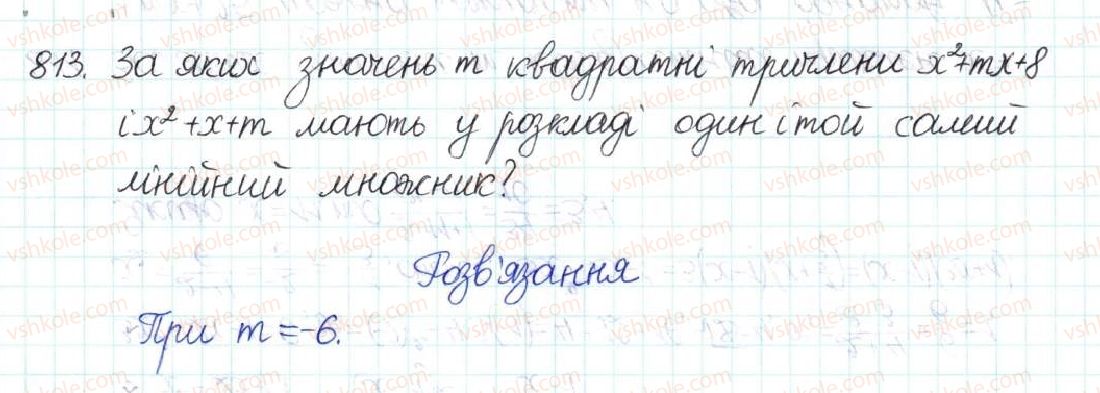 813. За яких значень m квадратні тричлени x²+mx+8
і x²+x+m мають у розкладі один і той самий
лінійний множник?
Розв'язання
При m = -6.